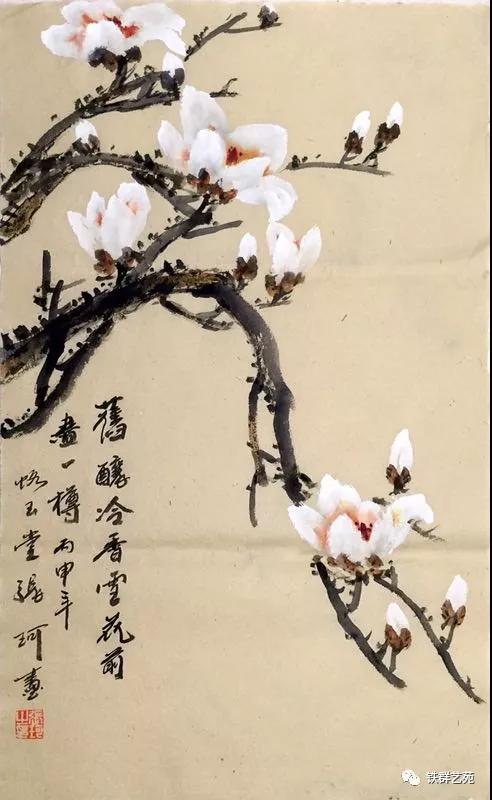 舊釀冷香雪花前
盡一樽 丙申年
玉堂張珂畫
铁群艺苑